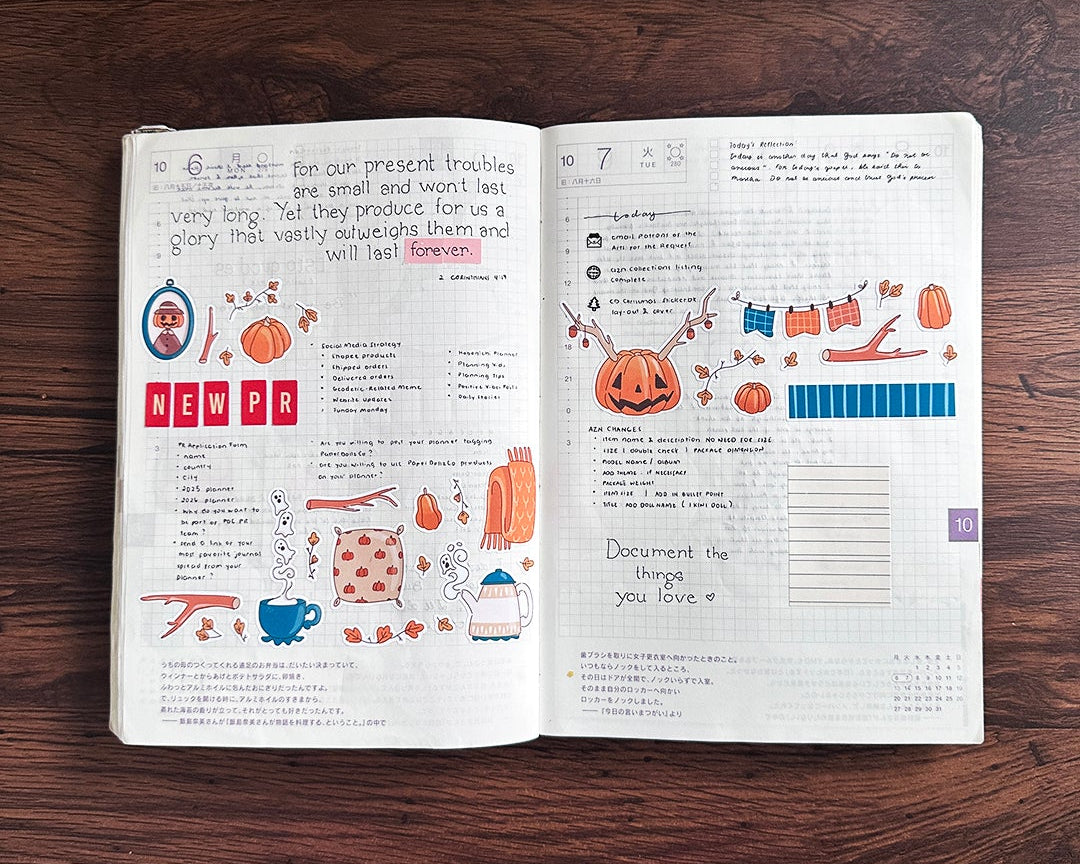 10 6 月 MON
For our present troubles
are small and won't last
very long. Yet they produce for us a
glory that vastly outweighs them and
will last forever.
2 CORINTHIANS 4:17
Social Media Strategy
• Shopee products
• Shipped orders
• Delivered orders
• Geodetic-Related Meme
• Website Updates
• Sunday Monday
• Hobonichi Planner
• Planning Vids
• Planning Tips
• Positive Vibes Posts
• Daily Stories
NEW PR
3
PR Application Form
• name
• country
• city
• 2025 planner
• 2026 planner
• Why do you want to
be part of PDC PR
Team?
• Send a link of your
most favorite journal
spread from your
planner?
• Are you willing to post your planner tagging
PaperDollsCo?
• Are you willing to use PaperDollsCo products
on your planner?
うちの母のつくってくれる遠足のお弁当は、だいたい決まっていて、
ウィンナーとからあげとポテトサラダに、卵焼き、
ふわっとアルミホイルに包んだおにぎりだったんですよ。
で、リュックを開ける時に、アルミホイルのすきまから、
蒸れた海苔の香りが立って、それがとっても好きだったんです。
──飯島奈美さんが『飯島奈美さんが物語を料理する、ということ。』の中で
10 7 火 TUE 280
旧:八月十六日
Today's Reflection
Today is another day that God says "Do not be
anxious". For today's gospel, He said this to
Martha. Do not be anxious and trust God's process
6
today
9
email Patrons of the
Arts for the Request
12
AZN Collections listing
complete
CD Christmas Stickerbk
lay-out & cover
18
21
0
3
AZN CHANGES
• ITEM NAME & DESCRIPTION NO NEED FOR SIZE
• SIZE | double check | PACKAGE DIMENSION
• MODEL NAME / DIBUJO
• ADD THEME - IF NECESSARY
PACKAGE WEIGHT
• ITEM SIZE | ADD IN BULLET POINT
• TITLE ADD DOLL NAME ( 1 KINI DOLL )
10
Document the
things
you love ♡
歯ブラシを取りに女子更衣室へ向かったときのこと。
いつもならノックをして入るところ、
その日はドアが全開で、ノックいらずで入室。
そのまま自分のロッカーへ向かい
ロッカーをノックしました。
──『今日の言いまつがい』より
月 火 水 木 金 土 日
1 2 3 4 5
6 7 8 9 10 11 12
13 14 15 16 17 18 19
20 21 22 23 24 25 26
27 28 29 30 31